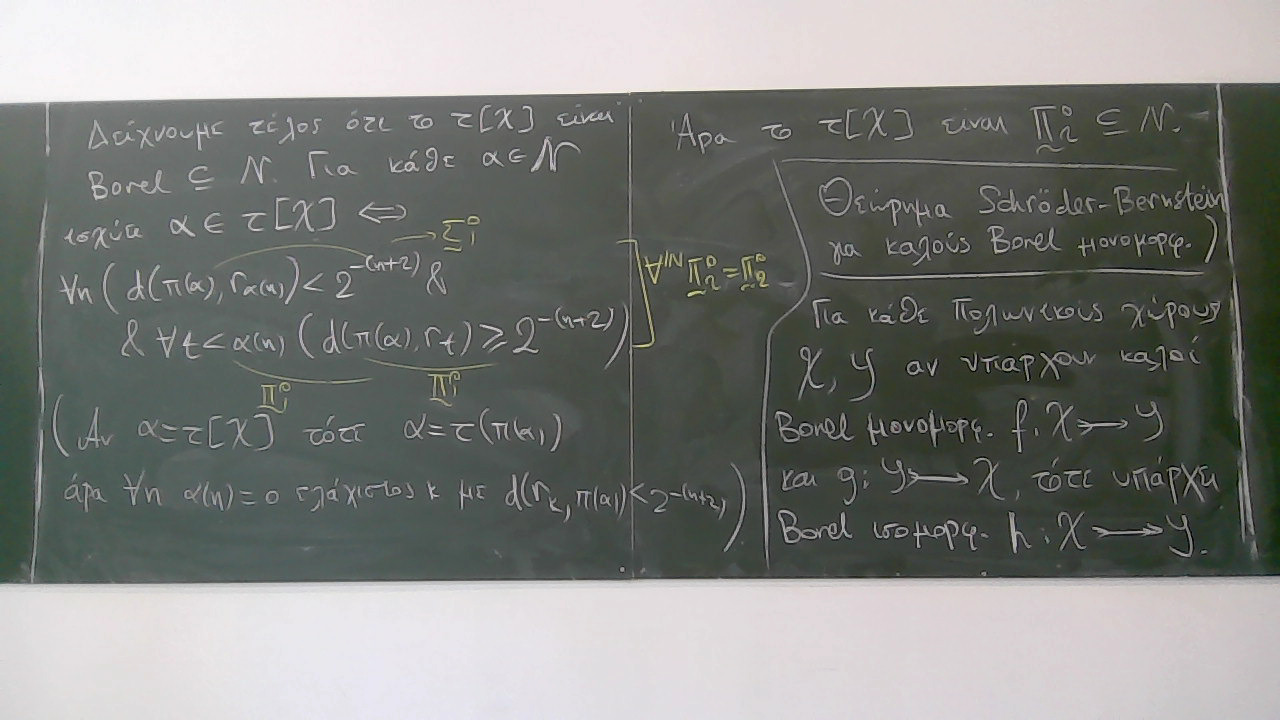 Δείχνουμε τέλος ότι το τ[X] είναι
Borel ⊆ N. Για κάθε α ∈ N
ισχύει α ∈ τ[X] ⟺
Σ⁰₁
∀n (d(π(α), r_α(n)) < 2^-(n+2) &
& ∀t < α(n) (d(π(α), r_t) ≥ 2^-(n+2))
∀^ℕ Π⁰₂ = Π⁰₂
Π⁰₁ Π⁰₁
(Αν α = τ[X] τότε α = τ(π(α))
άρα ∀n α(n) = ο ελάχιστος k με d(r_k, π(α)) < 2^-(n+2))
Άρα το τ[X] είναι Π⁰₂ ⊆ N.
Θεώρημα Schröder-Bernstein
για καλούς Borel μονομορφ.)
Για κάθε Πολωνικούς χώρους
X, Y αν υπάρχουν καλοί
Borel μονομορφ. f: X ↣ Y
και g: Y ↣ X, τότε υπάρχει
Borel ισομορφ. h: X ⤖ Y.